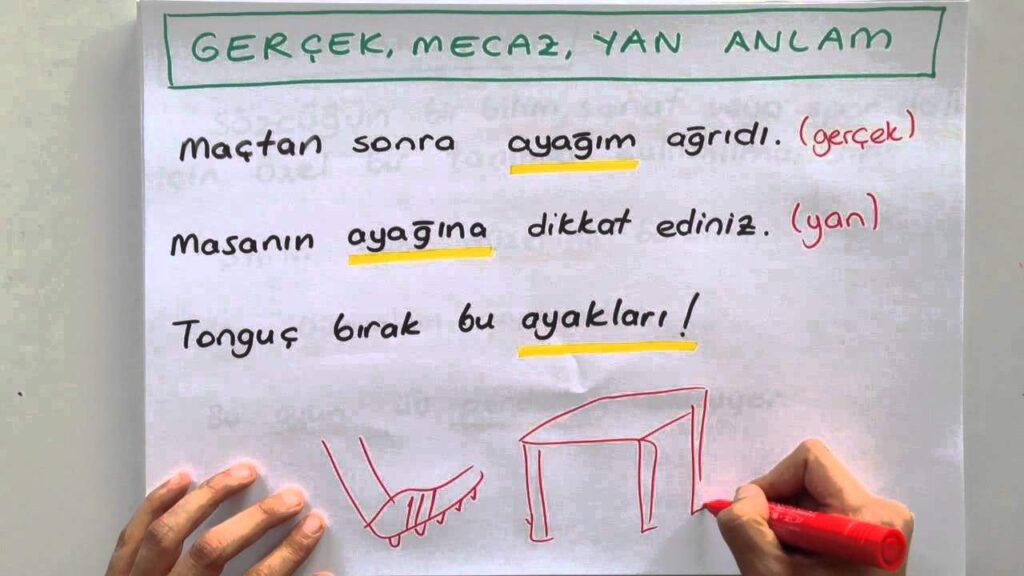 GERÇEK, MECAZ, YAN ANLAM
Maçtan sonra ayağım ağrıdı. (gerçek)
Masanın ayağına dikkat ediniz. (yan)
Tonguç bırak bu ayakları!